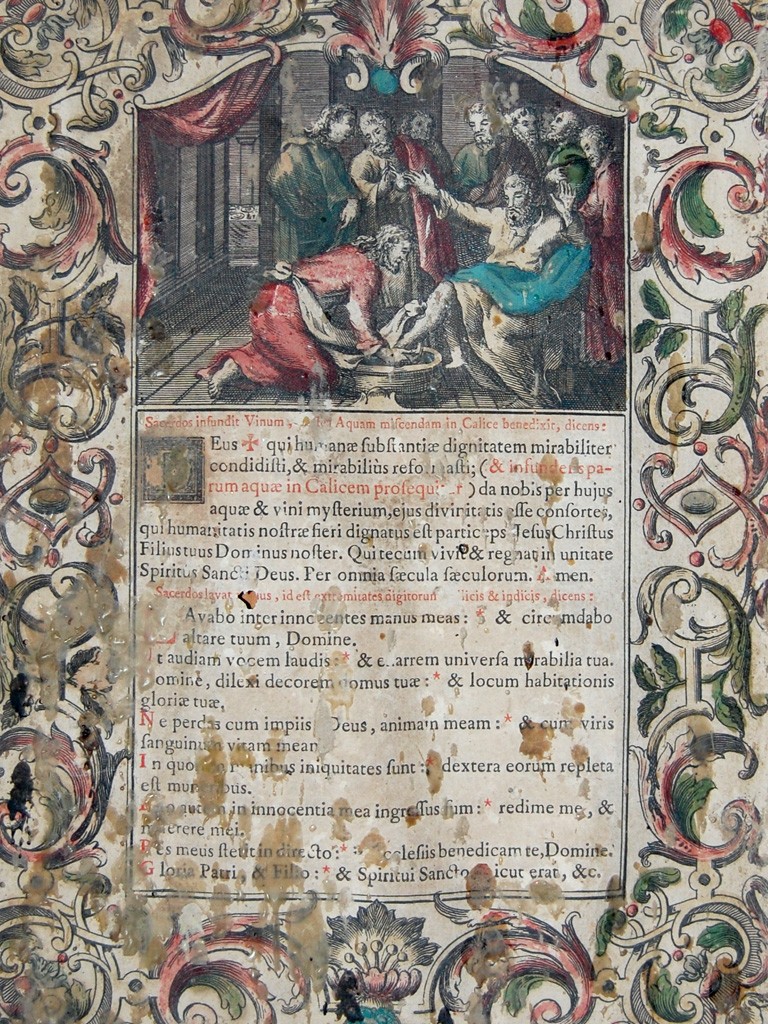 Sacerdos infundit Vinum, Aquam miscendam in Calice benedixit, dicens:
Eus ✠ qui humanæ substantiæ dignitatem mirabiliter
condidisti, & mirabiliùs reformasti; (& infundens pa-
rum aquæ in Calicem prosequitur) da nobis per hujus
aquæ & vini mysterium, ejus divinitatis esse consortes,
qui humanitatis nostræ fieri dignatus est particeps Jesus Christus
Filius tuus Dominus noster. Qui tecum vivit & regnat in unitate
Spiritus Sancti Deus. Per omnia sæcula sæculorum. Amen.
Sacerdos lavat manus, id est extremitates digitorum & indicis, dicens:
Avabo inter innocentes manus meas: * & circumdabo
altare tuum, Domine.
t audiam vocem laudis: * & enarrem universa mirabilia tua.
omine, dilexi decorem domus tuæ: * & locum habitationis
gloriæ tuæ,
Ne perdas cum impiis Deus, animam meam: * & cum viris
sanguinum vitam meam
In quorum manibus iniquitates sunt: * dextera eorum repleta
est muneribus.
autem in innocentia mea ingressus sum: * redime me, &
miserere mei.
Pes meus stetit in directo: * ecclesiis benedicam te, Domine.
Gloria Patri, & Filio: * & Spiritui Sancto icut erat, &c.